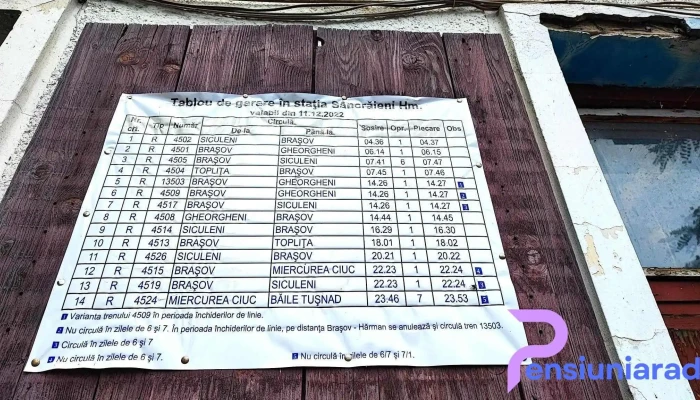 Tablou de garare în stația Sâncrăieni Hm.
valabil din 11.12.2022
Nr. crt. Tip Număr Circulă Sosire Opr. Plecare Obs
De la Până la
1 R 4502 SICULENI BRAŞOV 04.36 1 04.37
2 R 4501 BRAŞOV GHEORGHENI 06.14 1 06.15
3 R 4505 BRAŞOV SICULENI 07.41 6 07.47
4 R 4504 TOPLIŢA BRAŞOV 07.45 1 07.46
5 R 13503 BRAŞOV GHEORGHENI 14.26 1 14.27 1
6 R 4509 BRAŞOV GHEORGHENI 14.26 1 14.27 2
7 R 4517 BRAŞOV SICULENI 14.26 1 14.27 3
8 R 4508 GHEORGHENI BRAŞOV 14.44 1 14.45
9 R 4514 SICULENI BRAŞOV 16.29 1 16.30
10 R 4513 BRAŞOV TOPLIŢA 18.01 1 18.02
11 R 4526 SICULENI BRAŞOV 20.21 1 20.22
12 R 4515 BRAŞOV MIERCUREA CIUC 22.23 1 22.24 4
13 R 4519 BRAŞOV SICULENI 22.23 1 22.24 3
14 R 4524 MIERCUREA CIUC BĂILE TUŞNAD 23.46 7 23.53 5
1 Varianta trenului 4509 în perioada închiderilor de linie.
2 Nu circulă în zilele de 6 şi 7. În perioada închiderilor de linie, pe distanţa Braşov - Hărman se anulează şi circulă tren 13503.
3 Circulă în zilele de 6 şi 7
4 Nu circulă în zilele de 6 şi 7. 5 Nu circulă în zilele de 6/7 şi 7/1.
Pensiuniarad